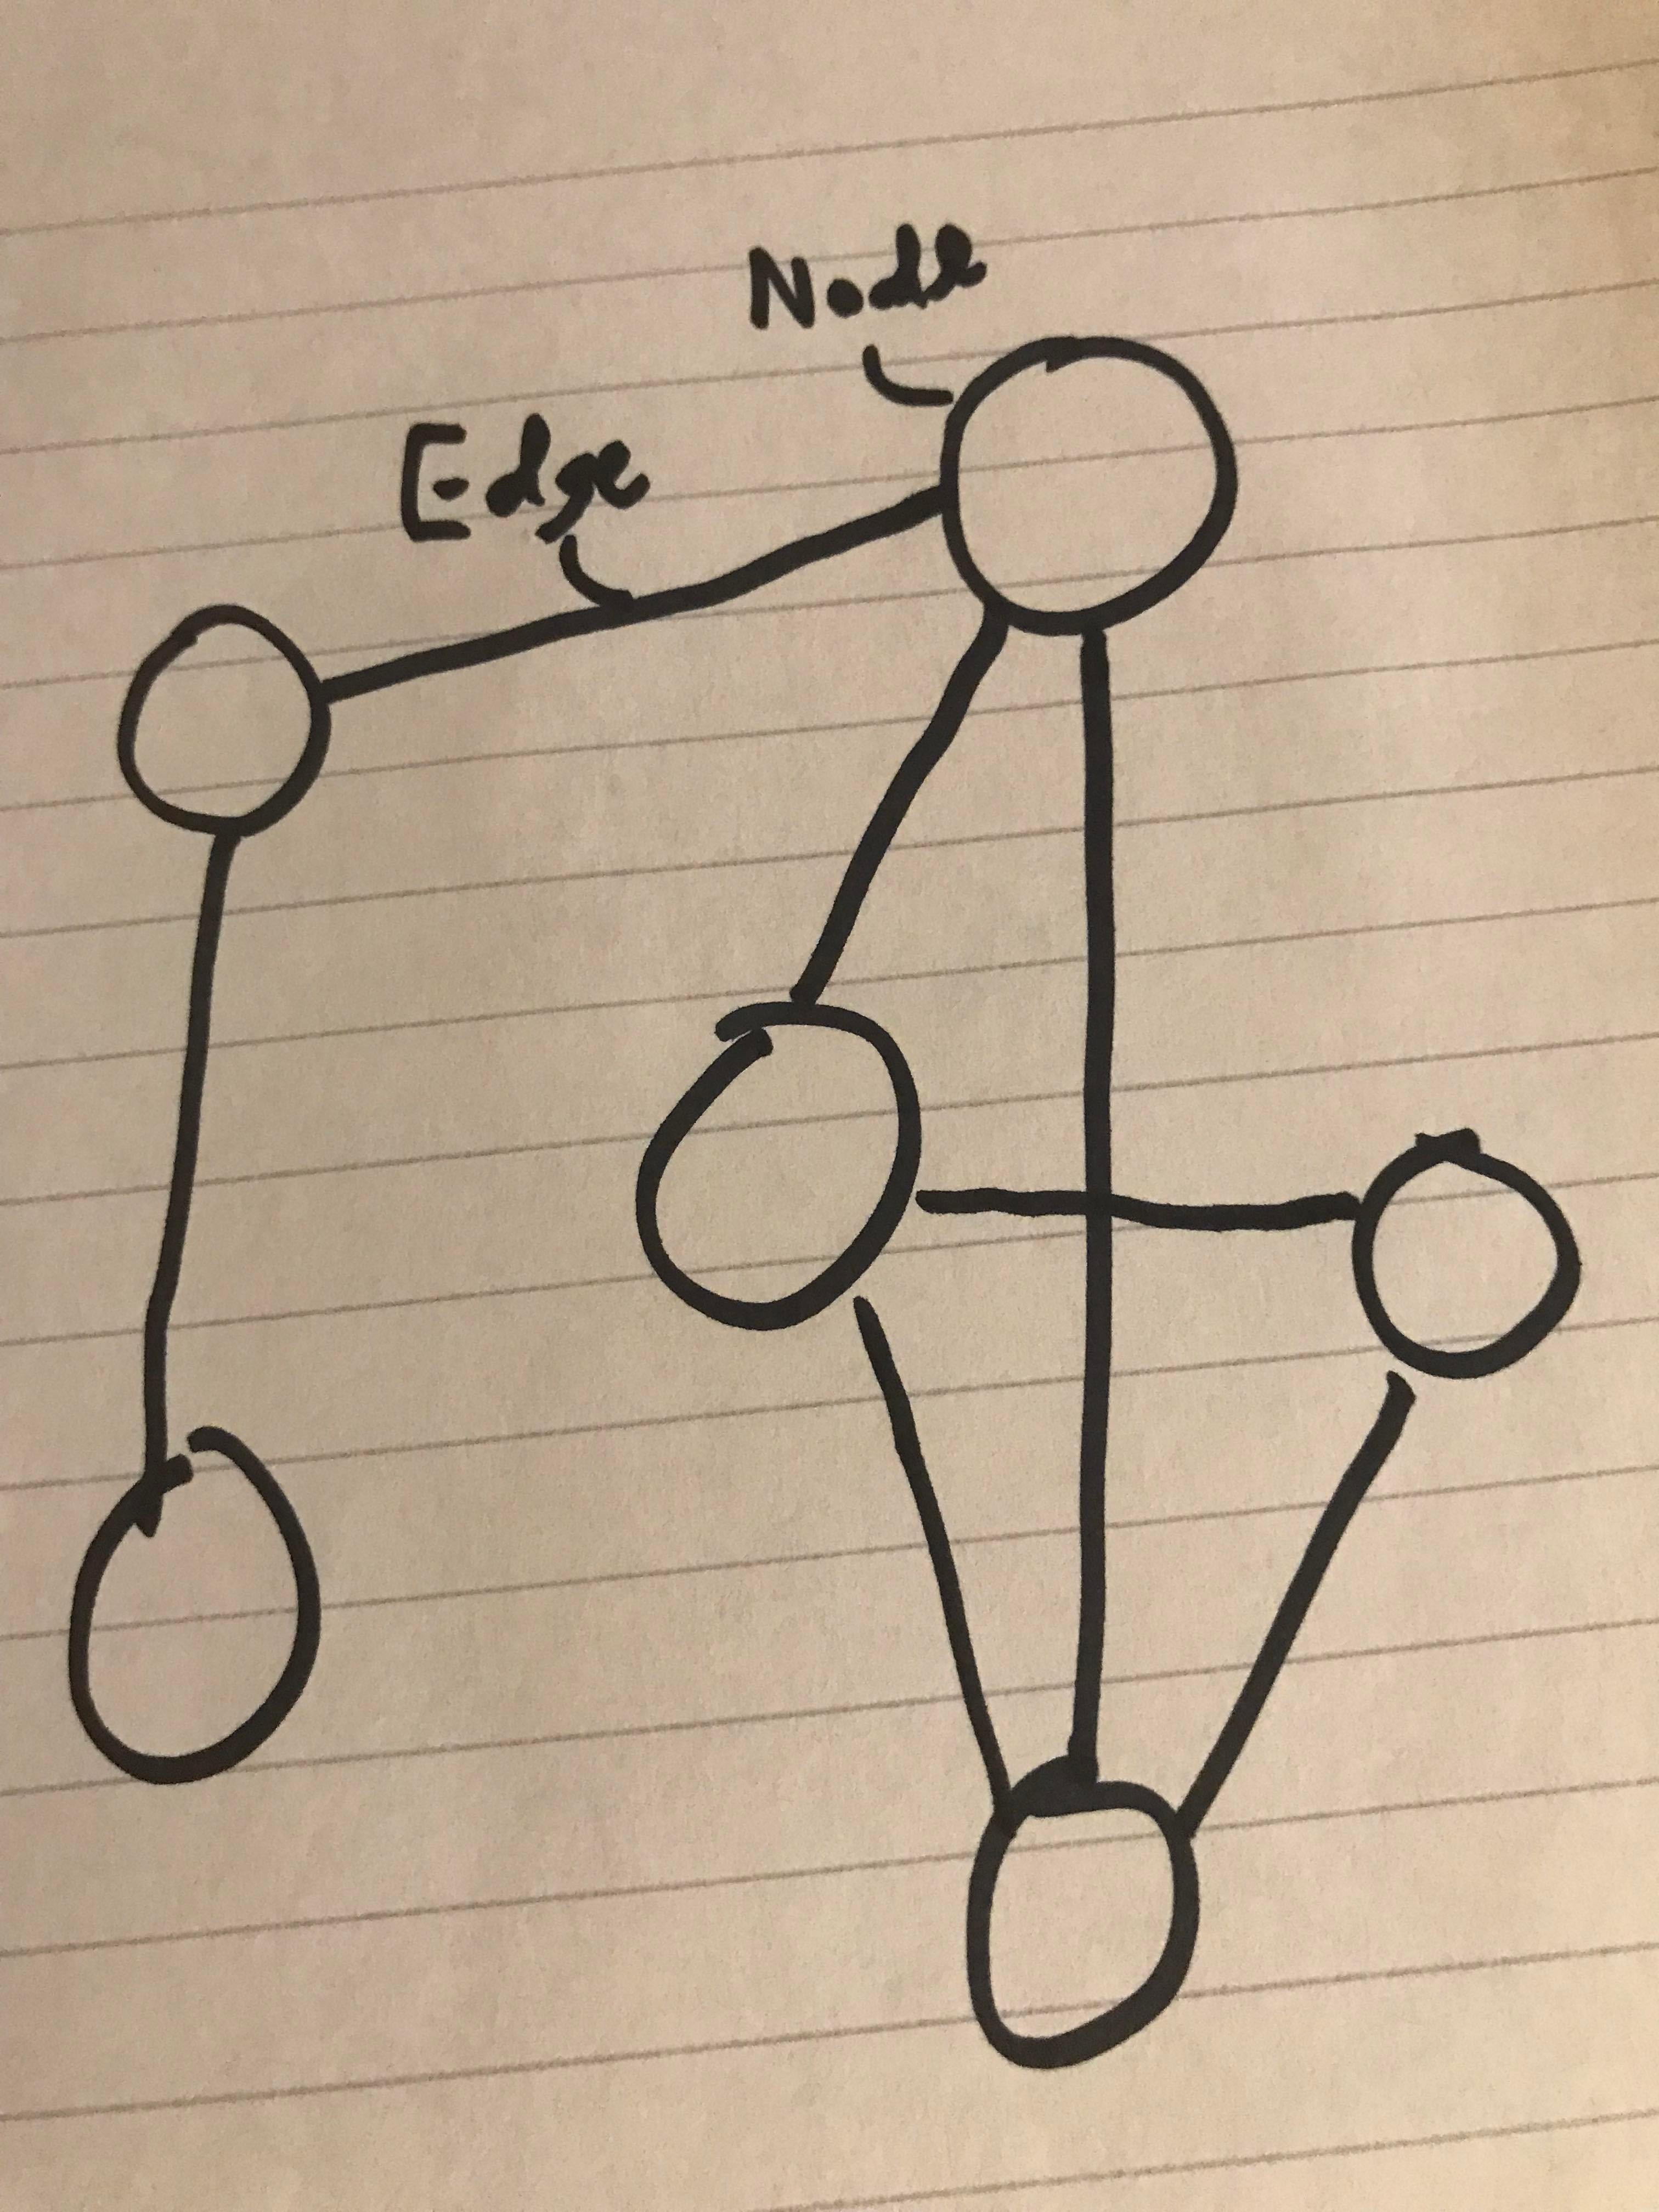 Node
Edge